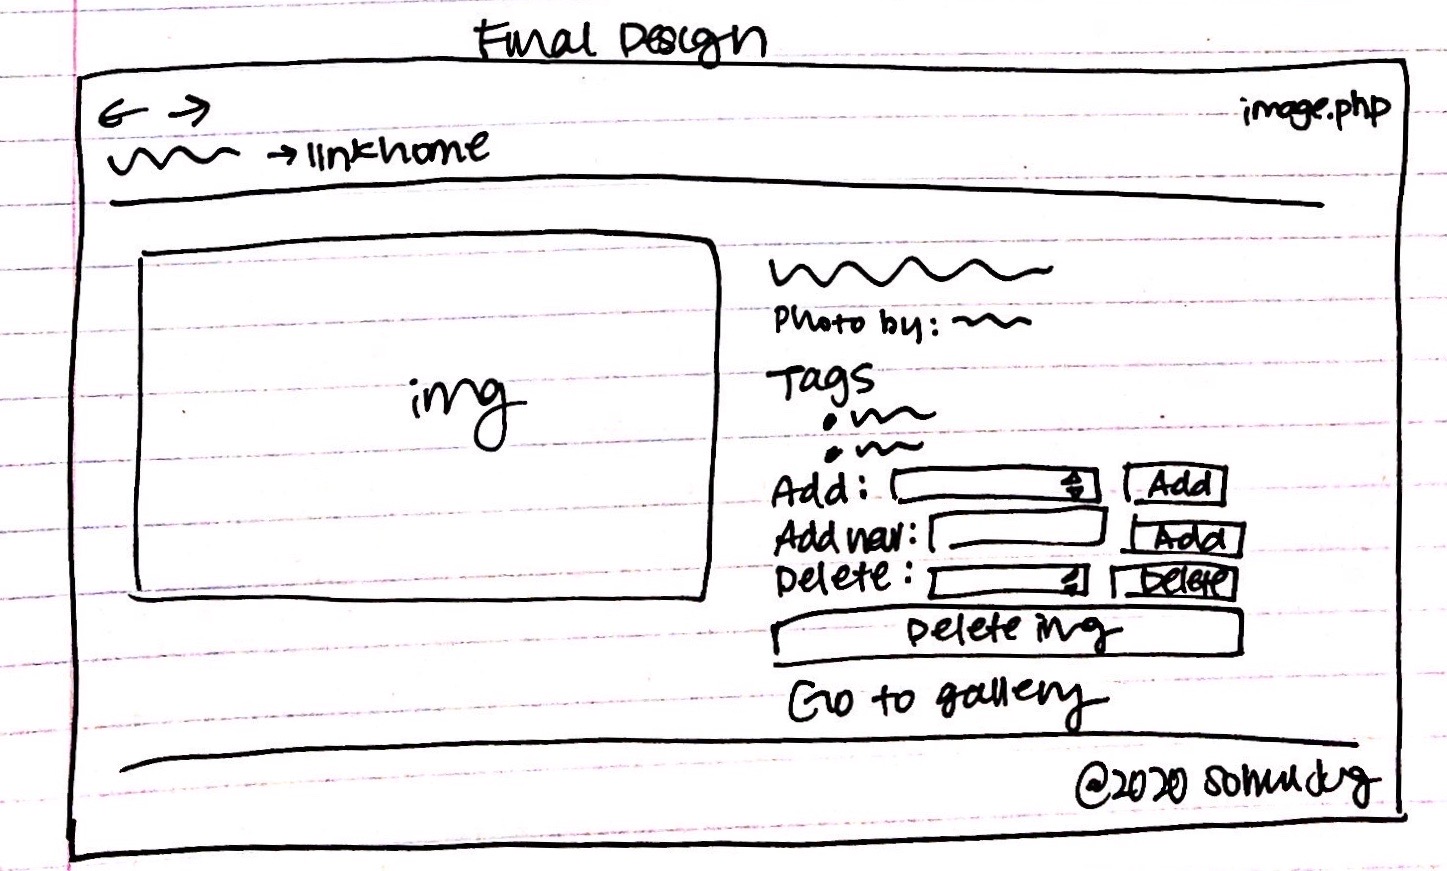 Final Design
image.php
→ linkhome
img
Photo by:
Tags
Add: Add
Add new: Add
Delete: Delete
Delete img
Go to gallery
@2020